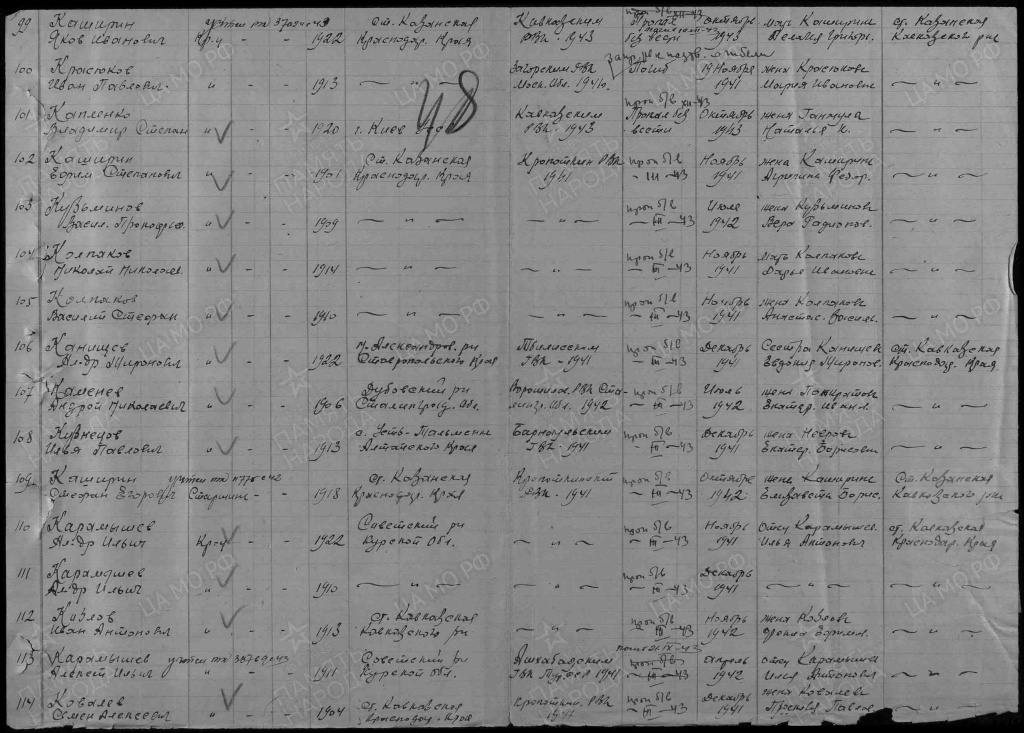 99 Каширин учтен 37094-43 ст. Казанская Кавказским Октябрь мать Каширина ст. Казанская
Яков Иванович Кр-ц - - 1922 Краснодар. Края РВК 1943 без вести 1943 Пелагея Григорь. Кавказской р-на
100 Крысюков Загорским РВК Погиб 19 Ноября жена Крысюкова
Иван Павлович " - - 1913 — " — Моск. Обл. 1941 Мария Ивановна
48
101 Капленко Кавказским проп б/в XII-43 Октябрь жена
Владимир Степан " - - 1920 г. Киев РВК - 1943 Пропал без вести 1943 Наталья К.
102 Каширин ст. Казанская Кропоткин РВК проп б/в Ноябрь жена Каширина
Ефрем Степанович " - - 1901 Краснодар. Края 1941 - III - 43 1941 Агрепина Федор. — " —
103 Кузьминов проп б/в Июле жена Кузьминова
Васил. Прокофьев " - - 1909 — " — — " — - III - 43 1942 Вера Родионов. — " —
104 Колпаков проп б/в Ноябрь мать Колпакова
Николай Николаев. " - - 1914 — " — — " — - III - 43 1941 Дарья Ивановна — " —
105 Колпаков проп б/в Ноябрь жена Колпакова
Василий Стефан " - - 1910 — " — — " — - III - 43 1941 Анастас. Василь. — " —
106 Канищев Александров. р-н Тбилисским проп б/в Декабрь Сестра Канищева ст. Кавказская
Ал-др Миронович " - - 1922 Ставропольского Края РВК - 1941 - III - 43 1941 Евдокия Миронов. Краснодар. Края
107 Каменев Дубовский р-н Ворошилов. РВК Ста- проп б/в Июль жена
Андрей Николаевич " - - 1906 Сталинград. Обл. лингр. Обл. 1942 - III - 43 1942 Екатер. Ивановн. — " —
108 Кузнецов с. Усть-Тальменка Барнаульским проп б/в Декабрь жена
Илья Павлович " - - 1913 Алтайского Края ГВК - 1941 - III - 43 1941 Екатер. Борисовн — " —
109 Каширин ст. Казанская Кропоткинск проп б/в Октябрь жена Каширина ст. Казанская
Стефан Егорович Старшина - - 1918 Краснодар. Края РВК - 1941 - III - 43 1942 Елизавета Борис. Кавказского р-на
110 Карамышев Советский р-н проп б/в Ноябрь отец Карамышев ст. Кавказская
Ал-др Ильич Кр-ц - - 1922 Курской Обл. — " — - III - 43 1941 Илья Антонович Краснодар. Края
111 Карамышев проп б/в Декабрь
Ал-др Ильич " - - 1910 — " — — " — - III - 43 1941 — " — — " —
112 Козлов ст. Кавказская проп б/в Ноябрь жена Козлова
Иван Антонович " - - 1913 Кавказского р-на — " — - III - 43 1942 — " —
113 Карамышев учтен 38769-43 Советский р-н Ашхабадским проп б/в апрель отец Карамышев
Алексей Ильич " - - 1911 Курской обл. 1941 - III - 43 1942 Илья Антонович — " —
114 Ковалев ст. Кавказская Кропоткин. РВК проп б/в Декабрь жена Ковалева
Семен Алексеевич " - - 1904 Краснодар. Края 1941 - III - 43 1941 Прасковья Павлов. — " —